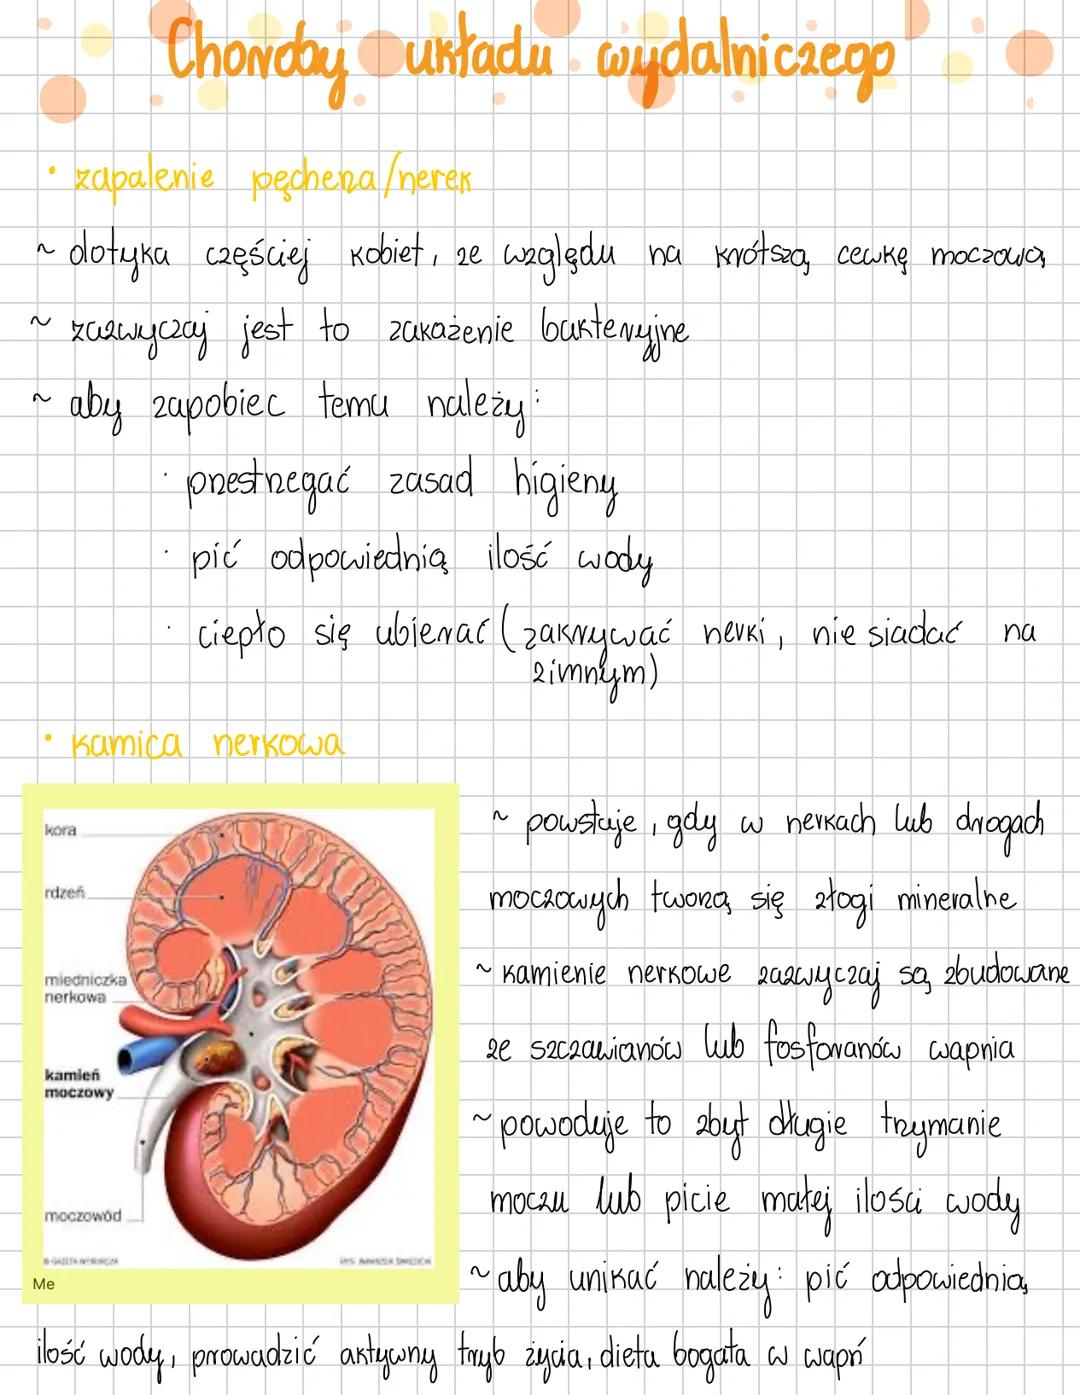 Choroby układu wydalniczego
• zapalenie pęcherza/nerek
~ dotyka częściej kobiet, ze względu na krótszą cewkę moczową
~ zazwyczaj jest to zakażenie bakteryjne
~ aby zapobiec temu należy:
· przestrzegać zasad higieny
· pić odpowiednią ilość wody
· ciepło się ubierać (zakrywać nerki, nie siadać na
zimnym)
• kamica nerkowa
kora
rdzeń
miedniczka
nerkowa
kamień
moczowy
moczowód
© GAZETA WYBORCZA
Me
~ powstaje, gdy w nerkach lub drogach
moczowych tworzą się złogi mineralne
~ kamienie nerkowe zazwyczaj są zbudowane
ze szczawianów lub fosforanów wapnia
~ powoduje to zbyt długie trzymanie
moczu lub picie małej ilości wody
~ aby unikać należy: pić odpowiednią
ilość wody, prowadzić aktywny tryb życia, dieta bogata w wapń